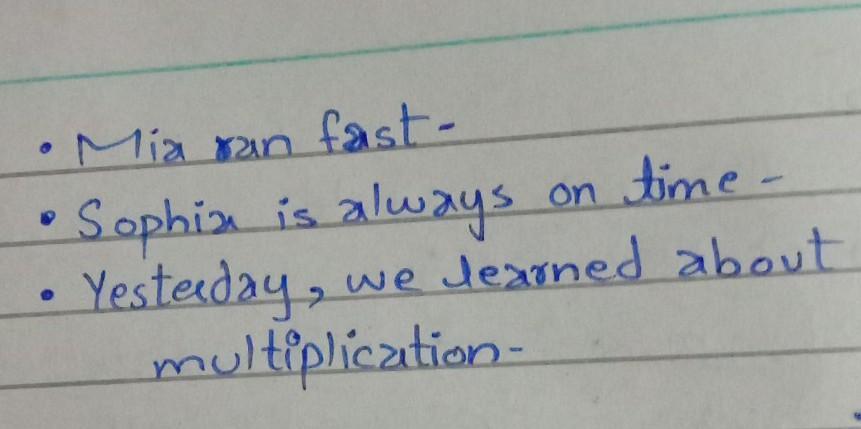 • Mia ran fast-
• Sophia is always on time-
• Yesterday, we learned about
multiplication-